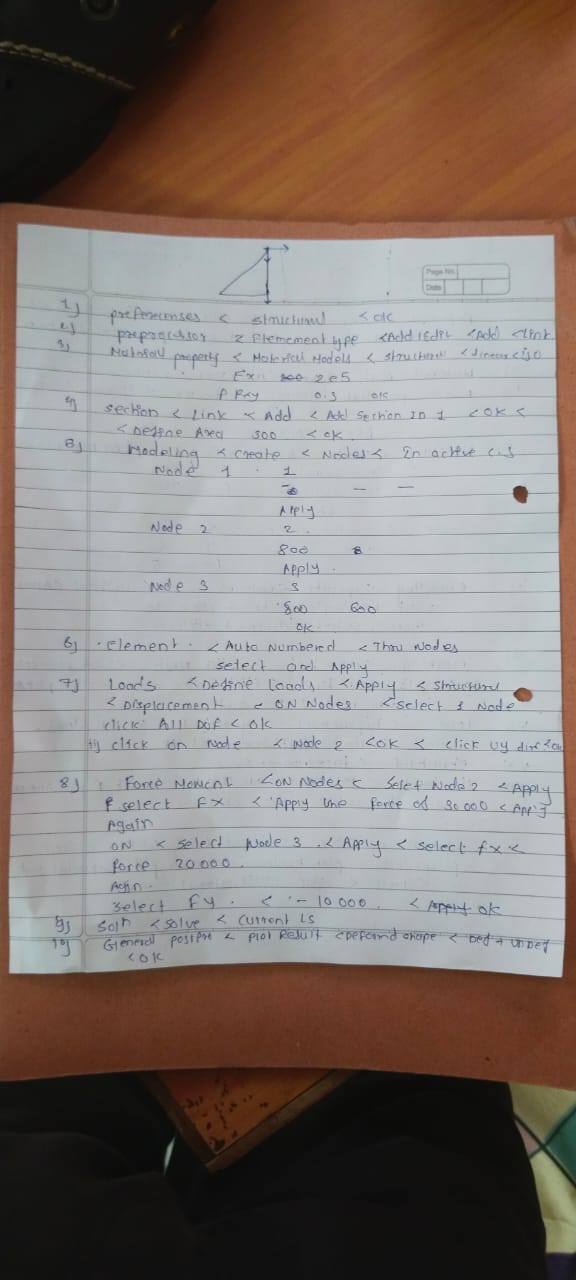 Page No.
Date
1) preferecenses < structural < ok
2) preprocessor < Elemement type <Add/Edit <Add <link
3) property < Material Models < structural < linear < iso
Ex 2e5
P Rxy 0.3 ok
4) section < Link < Add < Add Section ID 1 < OK <
< Define Area 300 < ok.
5) Modeling < create < Nodes < In active c.s
Node 1 . 1
— —
Apply
Node 2 2.
800
Apply.
Node 3 3
800 600
OK
6) . element. < Auto Numbered < Thru Nodes
select and Apply
7) Loads < Define Loads < Apply < Structural
< Displacement < ON Nodes < select 1 Node
click All DOF < ok
ii) click on Node < Node 2 < OK < click uy
8) Force Moment < ON Nodes < Selet Node 2 < Apply
select FX < Apply the force of 30 000 <
Again
ON < select Node 3 . < Apply < select fx <
force 20 000.
select Fy . < - 10 000. < ok
9) Soln < solve < current LS
10) General < plot Result < < Def + undef
< OK